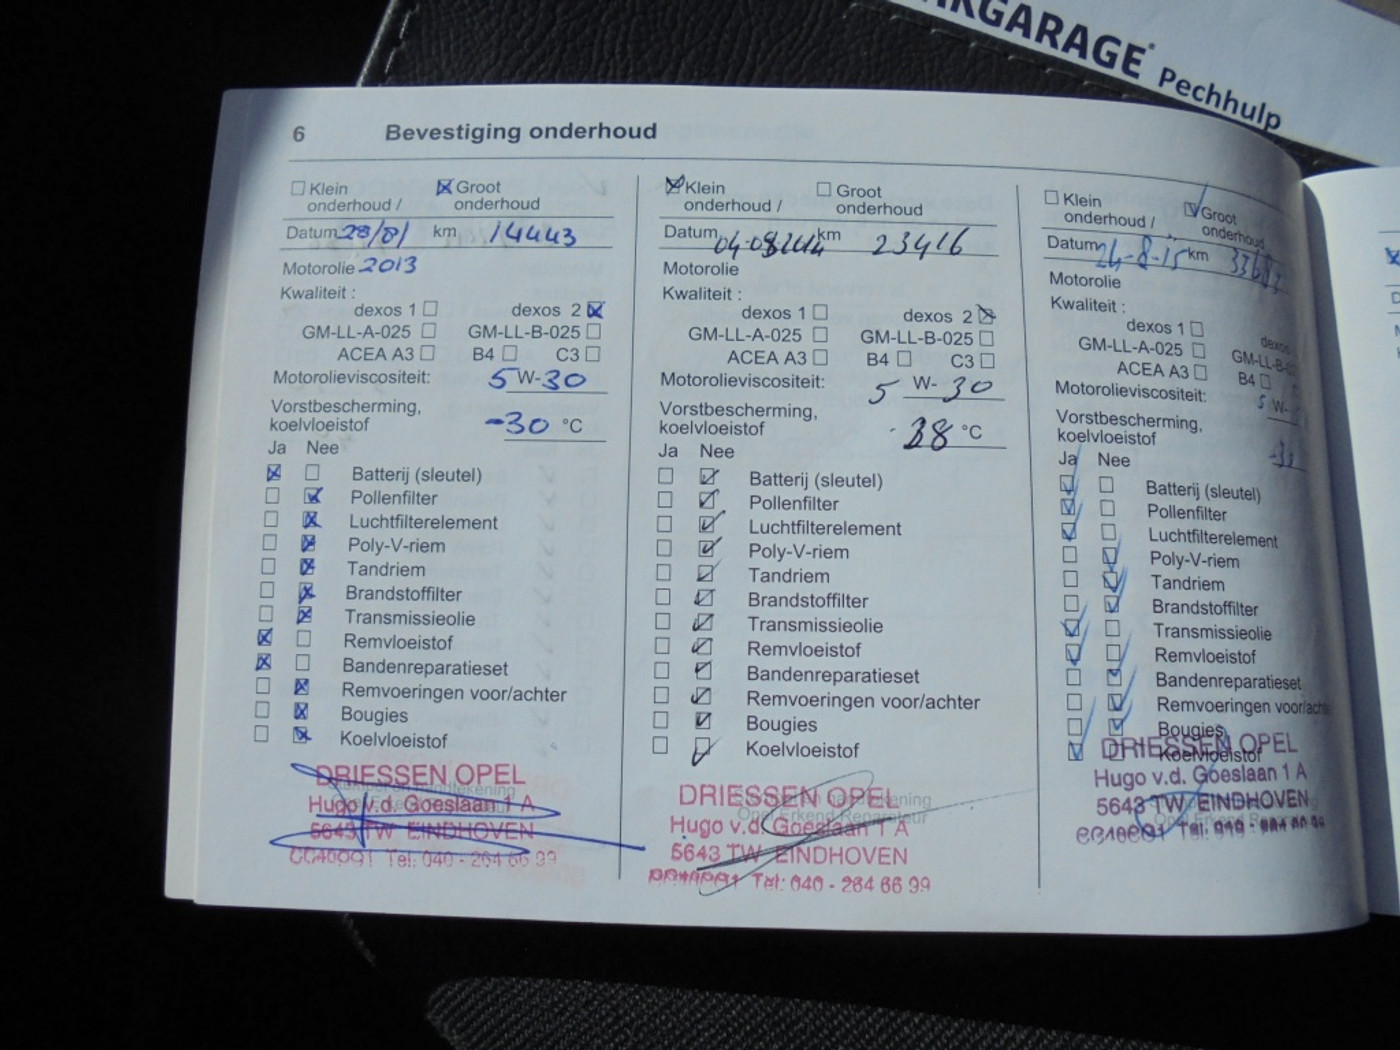 RGARAGE
Pechhulp
6 Bevestiging onderhoud
Klein onderhoud / Groot onderhoud
Datum 28/8/ km 14443
Motorolie 2013
Kwaliteit :
dexos 1 dexos 2
GM-LL-A-025 GM-LL-B-025
ACEA A3 B4 C3
Motorolieviscositeit: 5 W- 30
Vorstbescherming,
koelvloeistof -30 °C
Ja Nee
Batterij (sleutel)
Pollenfilter
Luchtfilterelement
Poly-V-riem
Tandriem
Brandstoffilter
Transmissieolie
Remvloeistof
Bandenreparatieset
Remvoeringen voor/achter
Bougies
Koelvloeistof
DRIESSEN OPEL
Hugo v.d. Goeslaan 1 A
5643 TW EINDHOVEN
Tel: 040 - 264 66 99
Klein onderhoud / Groot onderhoud
Datum km 23416
Motorolie
Kwaliteit :
dexos 1 dexos 2
GM-LL-A-025 GM-LL-B-025
ACEA A3 B4 C3
Motorolieviscositeit: 5 W- 30
Vorstbescherming,
koelvloeistof -38 °C
Ja Nee
Batterij (sleutel)
Pollenfilter
Luchtfilterelement
Poly-V-riem
Tandriem
Brandstoffilter
Transmissieolie
Remvloeistof
Bandenreparatieset
Remvoeringen voor/achter
Bougies
Koelvloeistof
DRIESSEN OPEL
Hugo v.d. Goeslaan 1 A
5643 TW EINDHOVEN
Tel: 040 - 264 66 99
Klein onderhoud / Groot onderhoud
Datum 24-8-15 km
Motorolie
Kwaliteit :
dexos 1 dexos
GM-LL-A-025 GM-LL-B-
ACEA A3 B4
Motorolieviscositeit: 5 W-
Vorstbescherming,
koelvloeistof
Ja Nee
Batterij (sleutel)
Pollenfilter
Luchtfilterelement
Poly-V-riem
Tandriem
Brandstoffilter
Transmissieolie
Remvloeistof
Bandenreparatieset
Remvoeringen voor/achter
Bougies
Koelvloeistof
DRIESSEN OPEL
Hugo v.d. Goeslaan 1 A
5643 TW EINDHOVEN